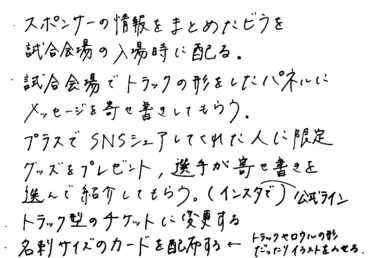 ・スポンサーの情報をまとめたビラを
試合会場の入場時に配る。
・試合会場でトラックの形をしたパネルに
メッセージを寄せ書きしてもらう。
プラスでSNSシェアしてくれた人に限定
グッズをプレゼント，選手が寄せ書きを
選んで紹介してもらう。(インスタで) 公式ライン
・トラック型のチケットに変更する
・名刺サイズのカードを配布する ←
トラックやロウルの形
だったりイラストをのせる。